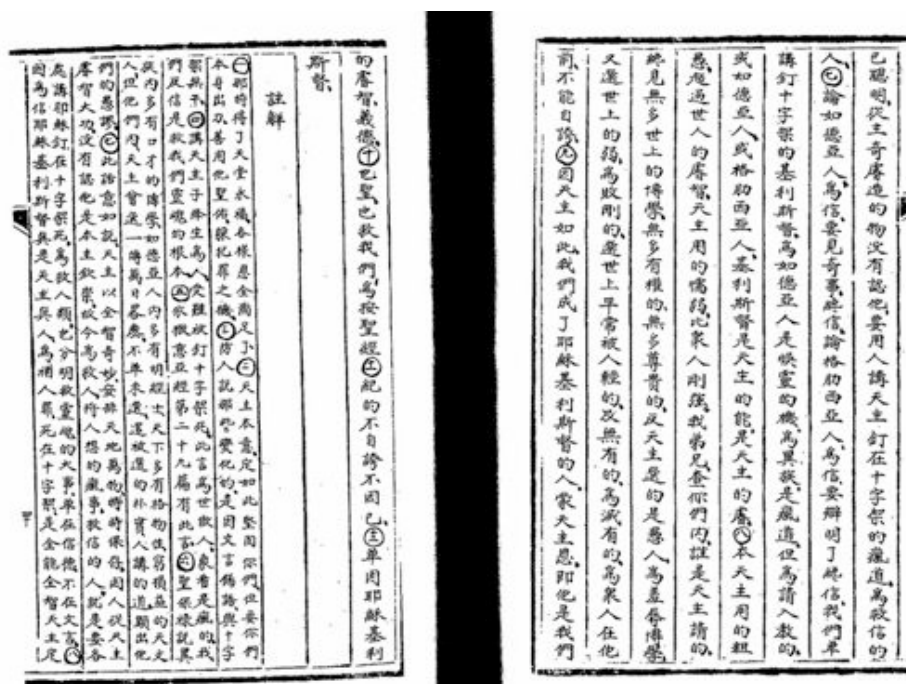 己聰明從主奇睿造的物沒有認他要用人講天主釘在十字架的瘋道為救信的
人㊆論如德亞人為信要見奇事纔信論格肋西亞人為信要辯明了纔信我們單
講釘十字架的基利斯督為如德亞人是的機為異族是瘋道但為請入教的
或如德亞人或格肋西亞人基利斯督是天主的能是天主的睿㊇本天主用的粗
愚超過世人的睿智天主用的懦弱比眾人剛強我弟兄查你們內誰是天主請的
總見無多世上的博學無多有權的無多尊貴的反天主選的是愚人為羞辱博學
又選世上的弱為敗剛的選世上平常被人輕的及無有的為滅有的為眾人在他
前不能自誇㊈因天主如此我們成了耶穌基利斯督的人蒙天主恩即他是我們
的睿智義德㊉也聖也救我們為按聖經紀的不自誇不因己單因耶穌基利
斯督
註解
㊀那時得了天堂永福各樣恩全尚足了㊁天主本意定如此堅固你們但要你們
本身出力善用他聖佑躲犯罪之機㊂人說那些變化的是因文言錫與十字
架無干㊃講天主子降生為人受難被釘十字架死此言為世人看是瘋的我
們是信是救我們靈魂的根本㊄意亞經第二十九篇有此言㊅聖保祿說異
內多有口才的博學如德亞人內多有明經士天下多有格物性窮的天文
人但他們內天主一不單未選還被選的朴實人講的道顯出他
們的愚㊆此語意如說天主以全智奇妙安排天地萬物時時保存因人從天主
睿智大功沒有認他是本主欽崇故今為救人人想的瘋事救信的人就是要各
處講耶穌釘在十字架死為救人類也分明救靈魂的大事單在信德不在文言㊇
因為信耶穌基利斯督真是天主與人為贖人罪死在十字架是全能全智天主定